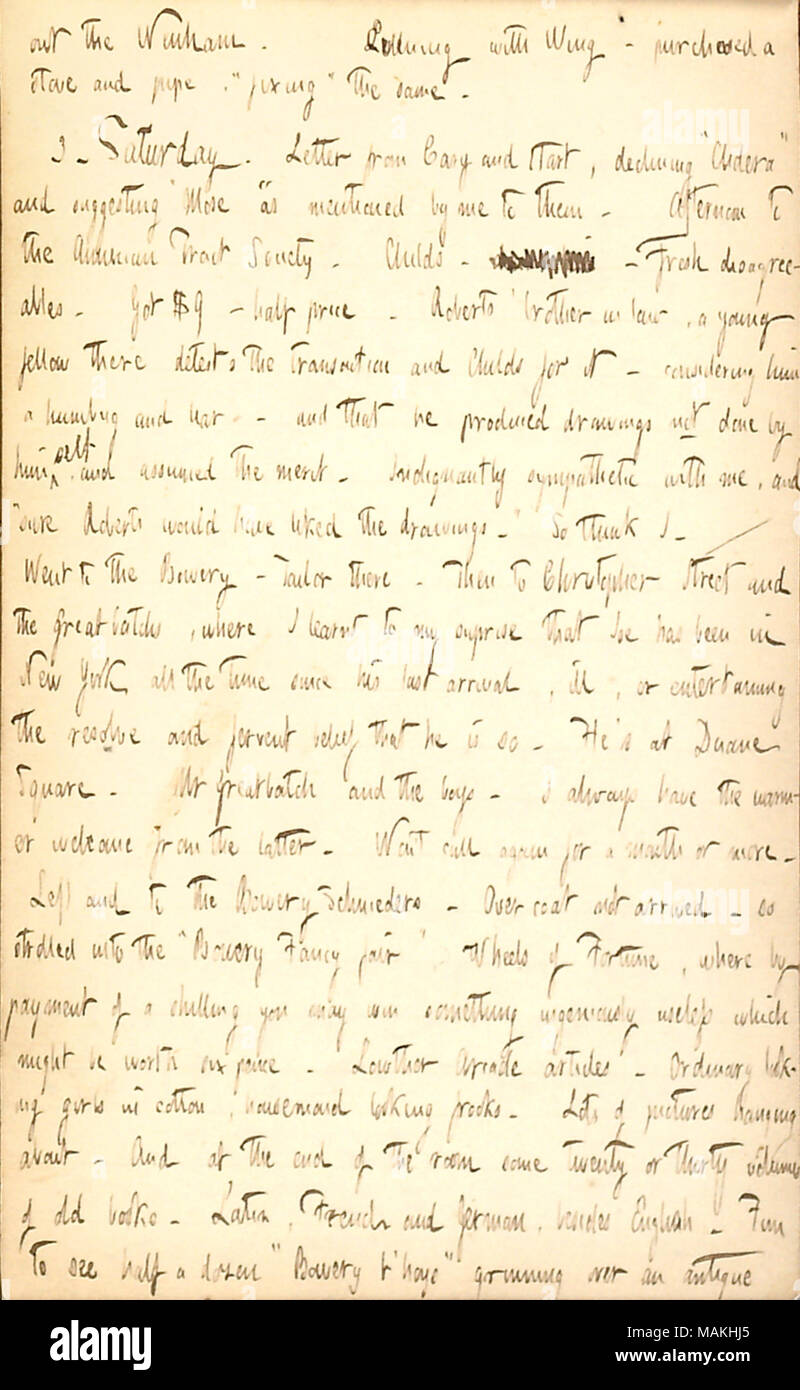 out the Winham. Evening with Wing - purchased a
stove and pipe. "fixing" the same -
3 - Saturday. Letter from Carey and Hart, declining "Cholera"
and suggesting "Mose" as mentioned by me to them - Afternoon to
the American Tract Society - Childs - - Fresh disagree-
ables - Got $9 - half price - Roberts' brother in law, a young
fellow there detests the transaction and Childs for it - considering him
a humbug and liar - and that he produced drawings not done by
himself and assumed the merit - Indignantly sympathetic with me, and
"sure Roberts would have liked the drawings -" So think I -
Went to the Bowery - Tailor there - Then to Christopher Street and
the Greatbatchs, where I learnt to my suprise that Joe has been in
New York all the time since his last arrival, ill, or entertaining
the resolve and fervent belief that he is so - He's at Duane
Square - Mr Greatbatch and the boys - I always have the warm-
er welcome from the latter - Won't call again for a month or more -
Left and to the Bowery Schnieders - Over coat not arrived - so
strolled into the "Bowery Fancy fair" Wheels of Fortune, where by
payment of a shilling you may win something ingeniously useless which
might be worth six pence - Lowther Arcade articles - Ordinary look-
ing girls in cotton, housemaid looking frocks - Lots of pictures hanging
about - And at the end of the room some twenty or thirty volumes
of old books - Latin, French and German, besides English - Fun
to see half a dozen "Bowery b'hoys" grinning over an antique
alamy
Image ID: MAKHJ5
www.alamy.com